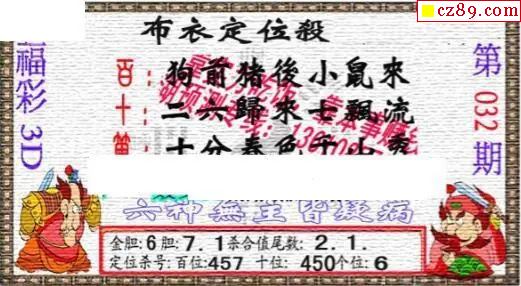 cz89.com
布衣定位殺
福彩3D
第032期
百:狗前猪後小鼠來
十:二六歸來七飄流
十分春色千山秀
六神無主皆疑病
金胆:6胆:7.1杀合值尾数:2.1.
定位杀号:百位:457 十位:450个位:6